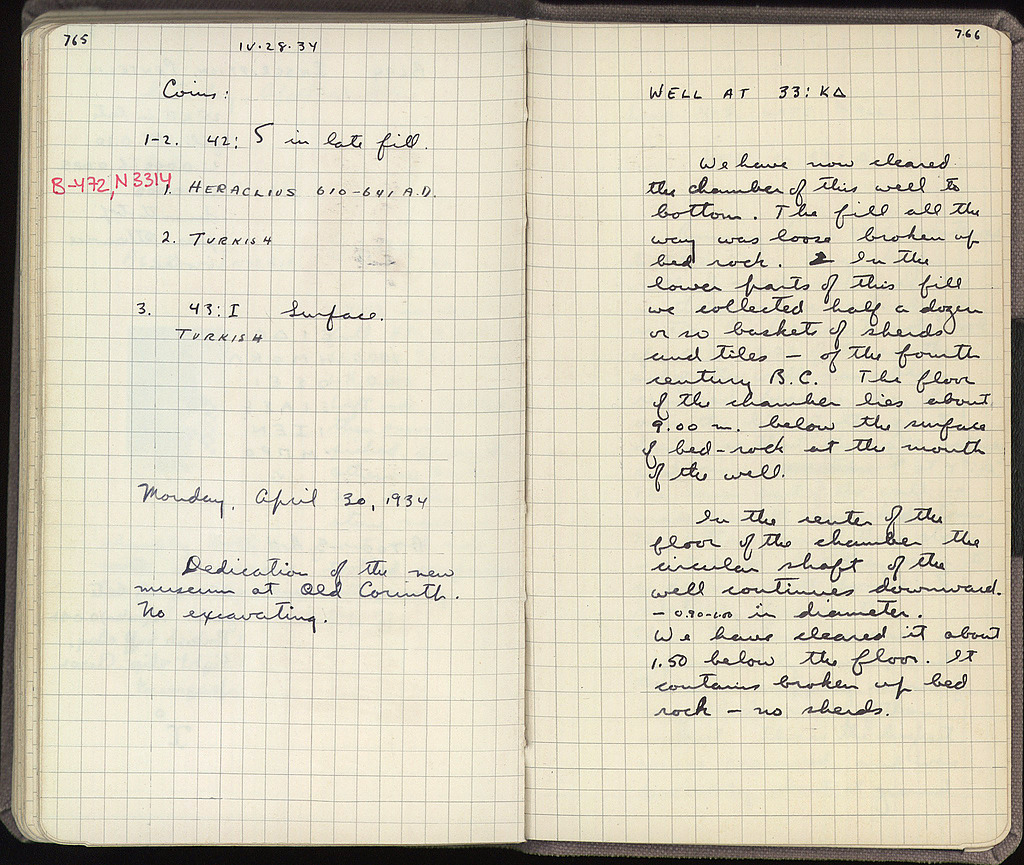 765
IV.28.34
Coins:
1-2. 42: 5 in late fill.
B-472, N3314
1. HERACLIUS 610-641 A.D.
2. TURKISH
3. 43: I Surface.
TURKISH
Monday, April 30, 1934
Dedication of the new
museum at Old Corinth.
No excavating.
766
WELL AT 33: KΔ
We have now cleared
the chamber of this well to
bottom. The fill all the
way was loose broken up
bed rock. In the
lower parts of this fill
we collected half a dozen
or so baskets of sherds
and tiles – of the fourth
century B.C. The floor
of the chamber lies about
9.00 m. below the surface
of bed-rock at the mouth
of the well.
In the center of the
floor of the chamber the
circular shaft of the
well continues downward.
– 0.90-1.00 in diameter.
We have cleared it about
1.50 below the floor. It
contains broken up bed
rock – no sherds.